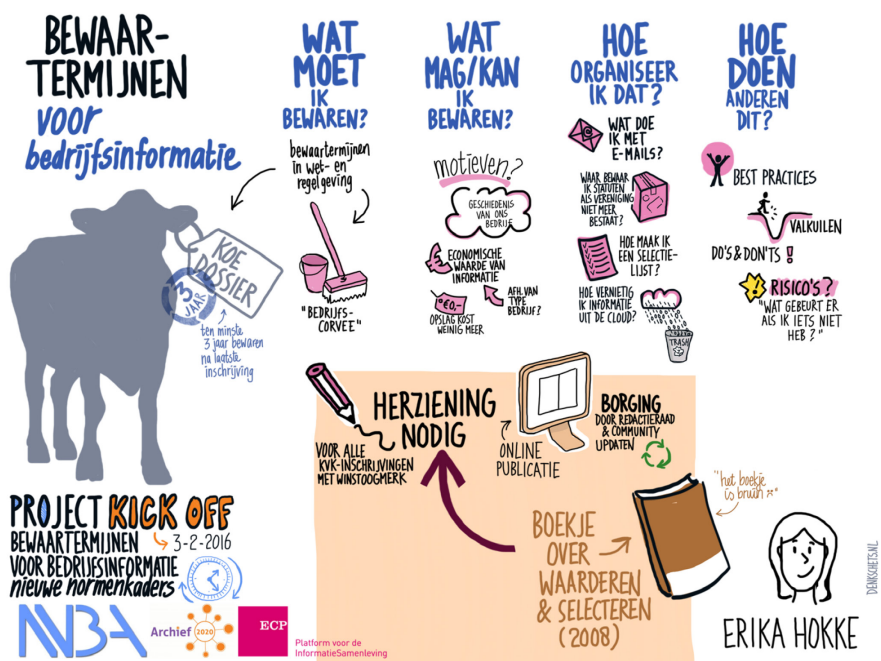 BEWAAR-
TERMIJNEN
voor
bedrijfsinformatie
KOE
DOSSIER
3
JAAR
ten minste
3 jaar bewaren
na laatste
inschrijving
WAT
MOET
IK
BEWAREN?
bewaartermijnen
in wet- en
regelgeving
"BEDRIJFS-
CORVEE"
WAT
MAG/KAN
IK
BEWAREN?
motieven?
GESCHIEDENIS
VAN ONS
BEDRIJF
ECONOMISCHE
WAARDE VAN
INFORMATIE
€0,-
OPSLAG KOST
WEINIG MEER
AFH. VAN
TYPE
BEDRIJF?
HOE
ORGANISEER
IK DAT?
WAT DOE
IK MET
E-MAILS?
WAAR BEWAAR
IK STATUTEN
ALS VERENIGING
NIET MEER
BESTAAT?
HOE MAAK IK
EEN SELECTIE-
LIJST?
HOE VERNIETIG
IK INFORMATIE
UIT DE CLOUD?
TRASH
HOE
DOEN
ANDEREN
DIT?
BEST PRACTICES
VALKUILEN
DO'S & DON'TS !
RISICO'S?
"WAT GEBEURT ER
ALS IK IETS NIET
HEB?"
HERZIENING
NODIG
VOOR ALLE
KVK-INSCHRIJVINGEN
MET WINSTOOGMERK
ONLINE
PUBLICATIE
BORGING
DOOR REDACTIERAAD
& COMMUNITY
UPDATEN
BOEKJE
OVER
WAARDEREN
& SELECTEREN
(2008)
"het boekje
is bruin"
ERIKA HOKKE
DENKSCHETS.NL
PROJECT KICK OFF
BEWAARTERMIJNEN
3-2-2016
VOOR BEDRIJFSINFORMATIE
nieuwe normenkaders
NBA
Archief 2020
ECP
Platform voor de
InformatieSamenleving